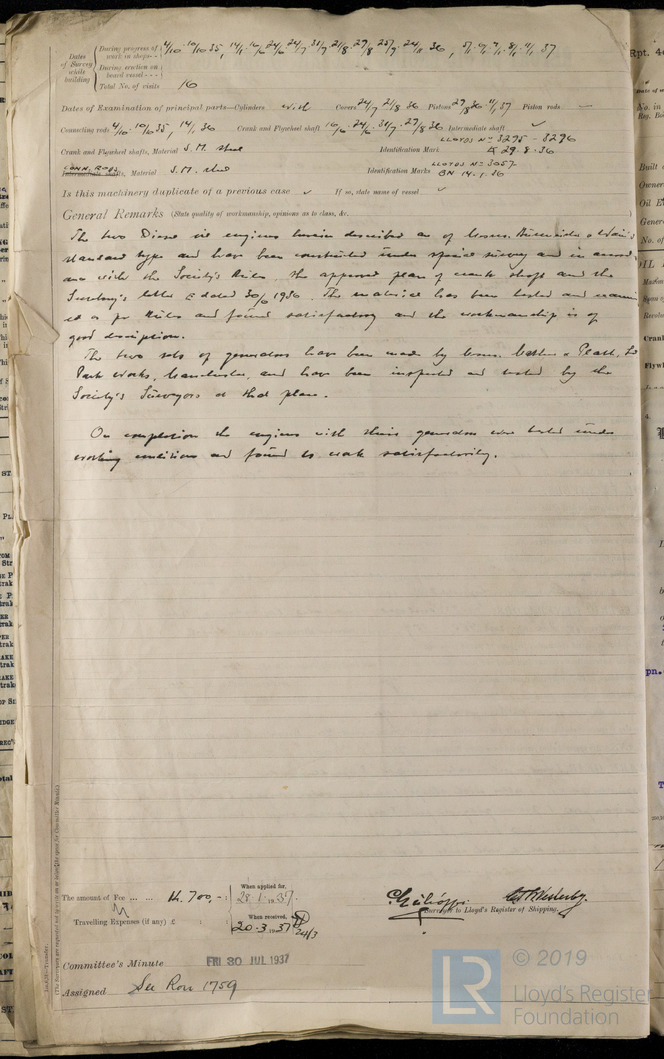 Dates of Survey while building
During progress of work in shops - - 4/10 · 10/10 35, 14/1 · 16/6 24/6 24/7 31/7 21/8 · 29/8 25/9 24/11 36, 5/1
During erection on board vessel - - -
Total No. of visits 16
Dates of Examination of principal parts—Cylinders Covers 24/7 21/8 36 Pistons 29/8 36 11/1 37 Piston rods ✓
Connecting rods 4/10 · 10/10 35, 14/1 36 Crank and Flywheel shaft 16/6 · 24/6 · 31/7 · 29/8 36 Intermediate shaft ✓
Crank and Flywheel shafts, Material S.M. steel Identification Mark LLOYDS No 3295 - 3296 29.8.36
CONN. RODS Material S.M. steel Identification Marks LLOYDS No 3057 BN 14.1.36
Is this machinery duplicate of a previous case ✓ If so, state name of vessel ✓
General Remarks (State quality of workmanship, opinions as to class, &c.
The two Diesel oil engines herein described are of Messrs.
standard type and have been constructed under special survey and in accord-
ance with the Society's Rules, the approved plan of crank shaft and the
Secretary's letter E dated 30/6 1936. The material has been tested and examin-
ed as per Rules and found satisfactory and the workmanship is of
good description.
The two sets of generators have been made by Messrs. Mather & Platt, Ltd
Park Works, Manchester, and have been inspected and tested by the
Society's Surveyors at that place.
On completion the engines with their generators were tested under
working conditions and found to work satisfactorily.
The amount of Fee ... ... 700,- : When applied for, 28.1.1937.
Travelling Expenses (if any) £ : When received, 20.3.1937 24/3
Surveyors to Lloyd's Register of Shipping.
Committee's Minute FRI 30 JUL 1937
Assigned See Rou 1759
LR © 2019
Lloyd's Register
Foundation